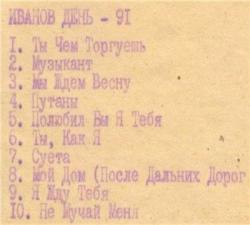 ИВАНОВ ДЕНЬ - 91
1. Ты Чем Торгуешь
2. Музыкант
3. Мы Ждем Весну
4. Путаны
5. Полюбил Бы Я Тебя
6. Ты, Как Я
7. Суета
8. Мой Дом (После Дальних Дорог
9. Я Жду Тебя
10. Не Мучай Меня